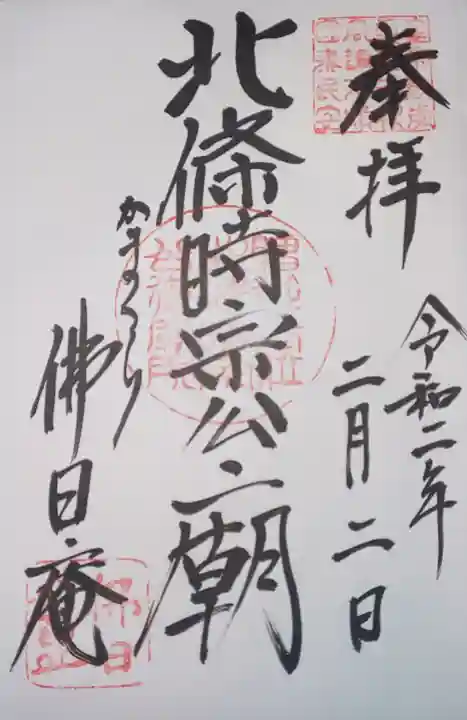 奉拝
令和二年
二月二日
北條時宗公廟
かまくら
佛日庵